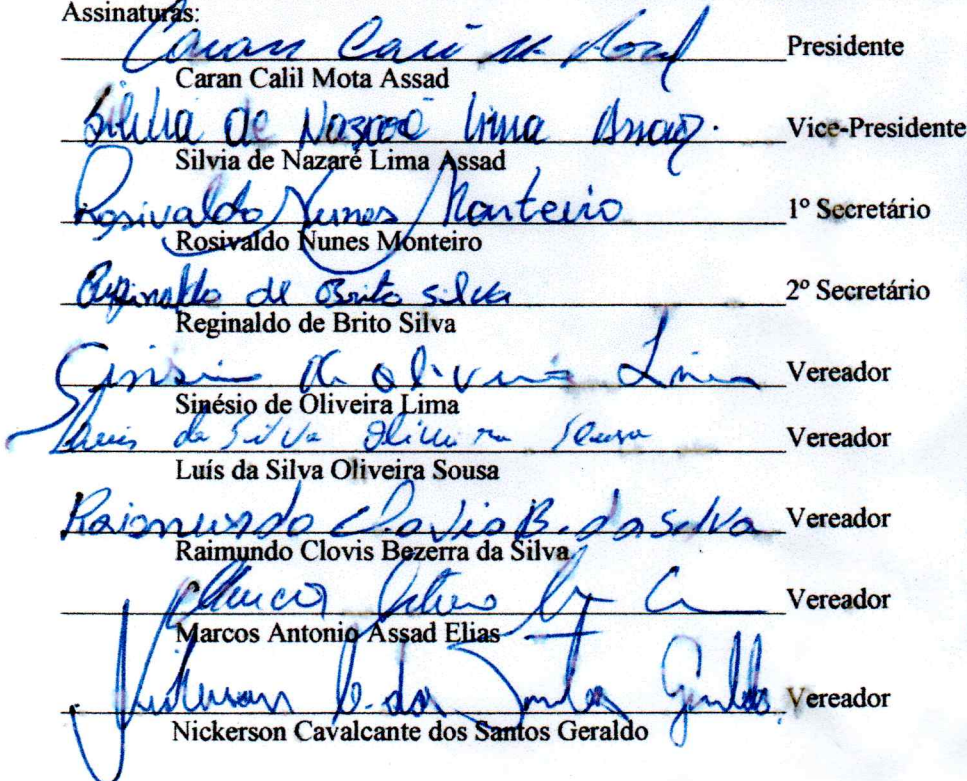 Assinaturas:
Caran Presidente
Caran Calil Mota Assad
Silvia de Nazaré Lima Assad. Vice-Presidente
Silvia de Nazaré Lima Assad
Rosivaldo Nunes Monteiro 1º Secretário
Rosivaldo Nunes Monteiro
Reginaldo de Brito silva 2º Secretário
Reginaldo de Brito Silva
de oliveira Lima Vereador
Sinésio de Oliveira Lima
Luis da Silva Oliveira Sousa Vereador
Luís da Silva Oliveira Sousa
Raimundo Clovis B. da Silva Vereador
Raimundo Clovis Bezerra da Silva
Vereador
Marcos Antonio Assad Elias
Nickerson C. dos Santos Geraldo. Vereador
Nickerson Cavalcante dos Santos Geraldo